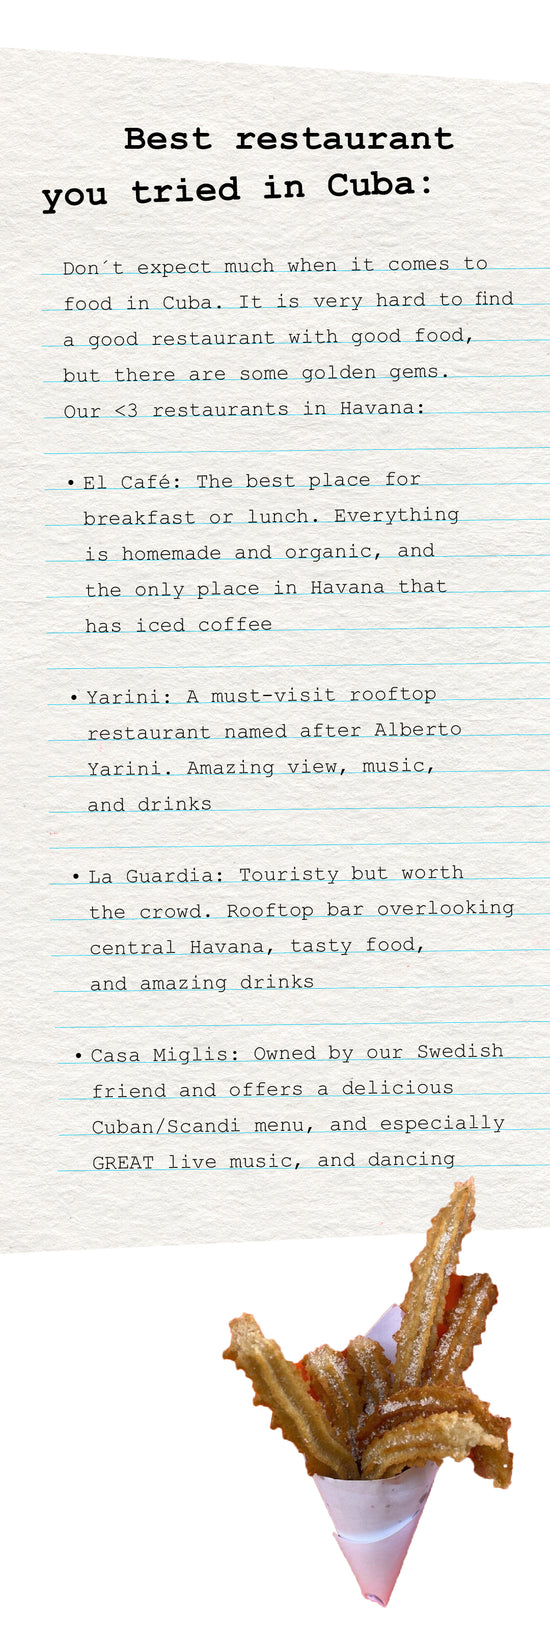 Best restaurant
you tried in Cuba:
Don´t expect much when it comes to
food in Cuba. It is very hard to find
a good restaurant with good food,
but there are some golden gems.
Our <3 restaurants in Havana:
• El Café: The best place for
breakfast or lunch. Everything
is homemade and organic, and
the only place in Havana that
has iced coffee
• Yarini: A must-visit rooftop
restaurant named after Alberto
Yarini. Amazing view, music,
and drinks
• La Guardia: Touristy but worth
the crowd. Rooftop bar overlooking
central Havana, tasty food,
and amazing drinks
• Casa Miglis: Owned by our Swedish
friend and offers a delicious
Cuban/Scandi menu, and especially
GREAT live music, and dancing